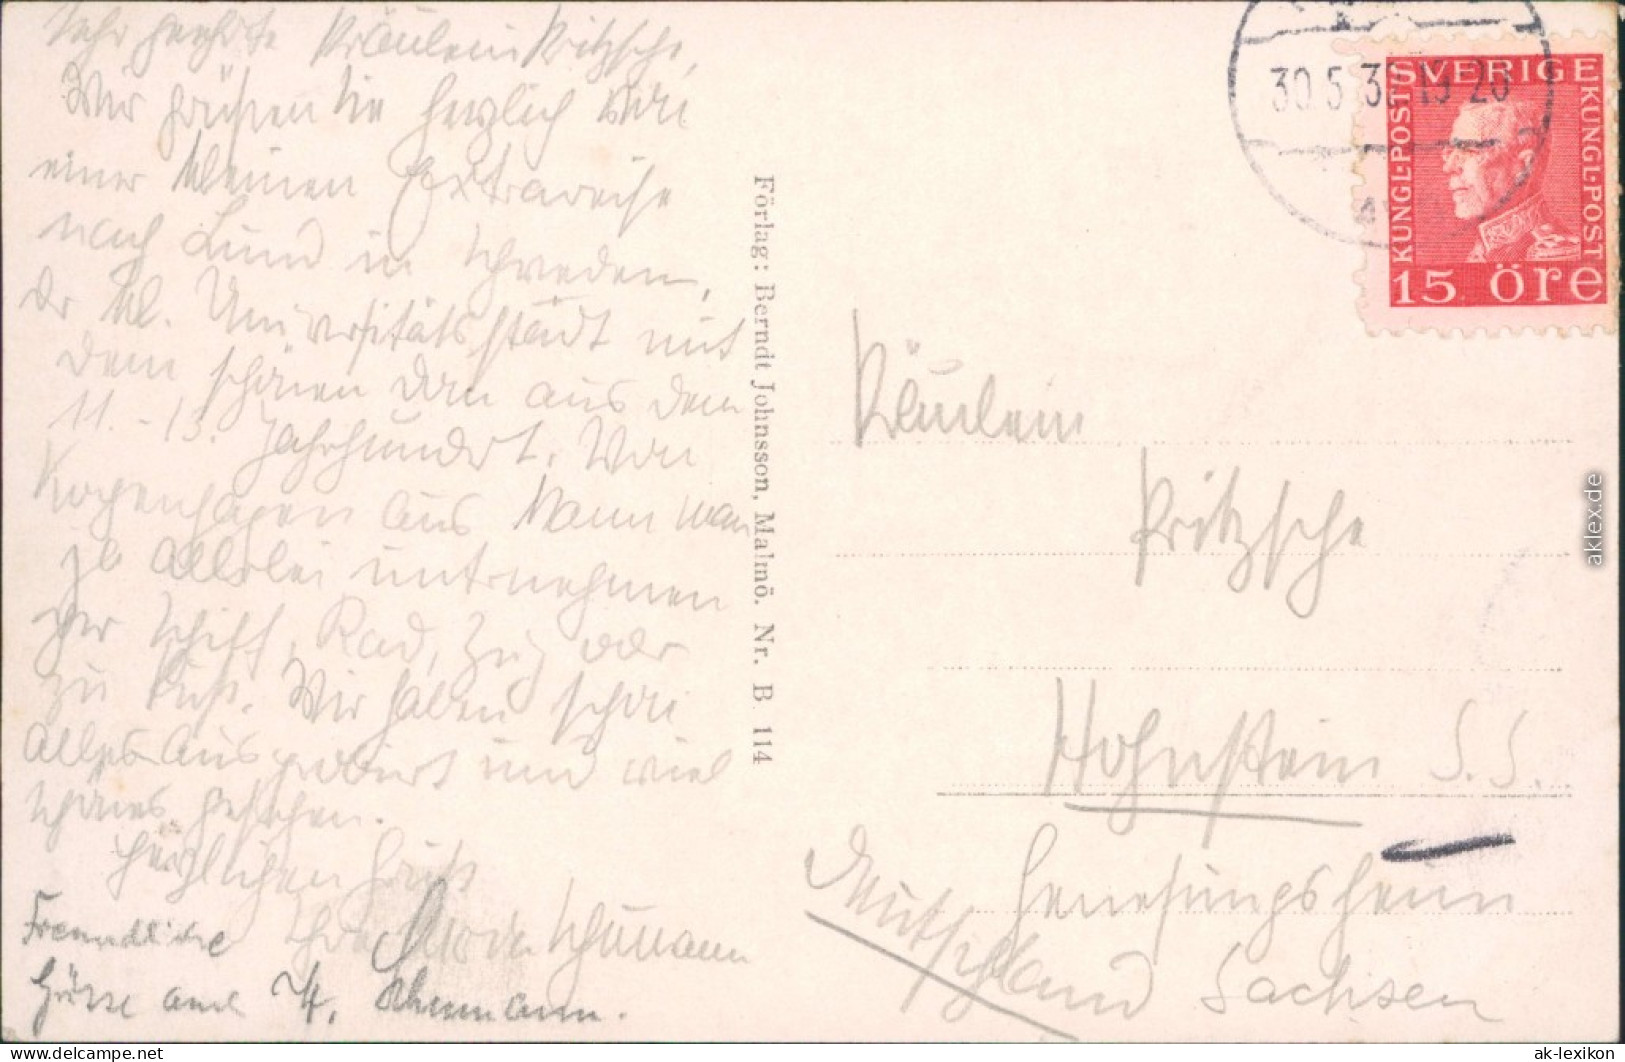 Sehr geehrte Fräulein Fritzsche,
Wir grüßen Sie herzlich von
einer kleinen Extrareise
nach Lund in Schweden,
der kl. Universitätsstadt mit
dem schönen Dom aus dem
11.-13. Jahrhundert. Von
Kopenhagen aus kann man
ja allerlei unternehmen
per Schiff, Rad, Zug oder
zu Fuß. Wir haben schon
alles ausprobiert und viel
schönes gesehen.
Herzlichen Gruß
Ihre Schumann
Freundliche
Grüsse auch Schumann.
Förlag: Berndt Johnsson, Malmö. Nr. B 114
30.5.3 19 20
SVERIGE
KUNGL-POST
KUNGL-POST
15 öre
Fräulein
Fritzsche
Hohnstein S.S.
Genesungsheim
Deutschland Sachsen
aklex.de
www.delcampe.net
ak-lexikon